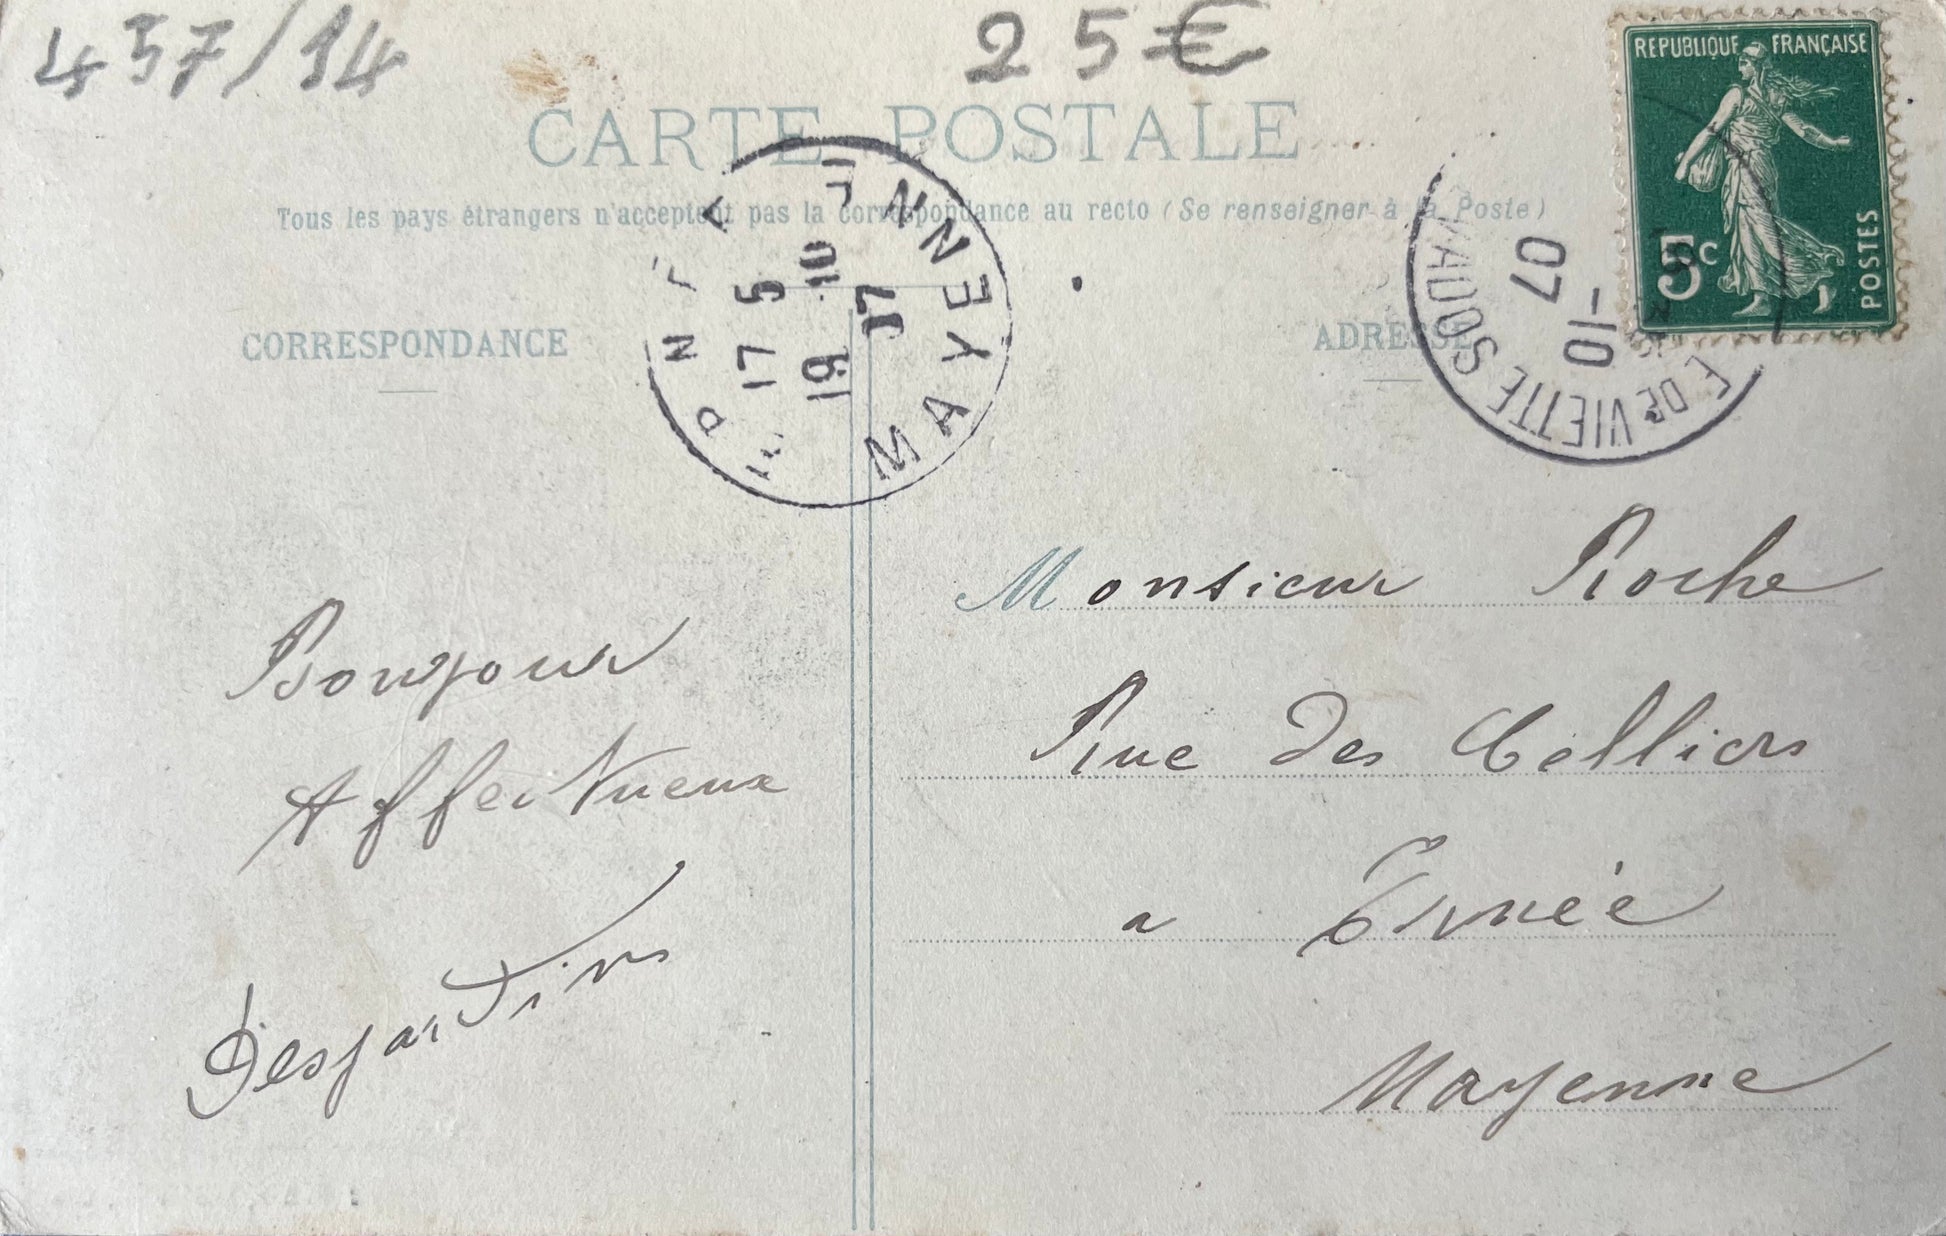 437/14
25€
RÉPUBLIQUE FRANÇAISE
5c
POSTES
CARTE POSTALE
Tous les pays étrangers n'acceptent pas la correspondance au recto (Se renseigner à la Poste)
MAYENNE
17 5
19 -10
07
07
-10
DE VIETTE SOU
CORRESPONDANCE
ADRESSE
Bonjour
Affectueux
Desjardins
Monsieur Roche
Rue des Celliers
a Ernée
Mayenne